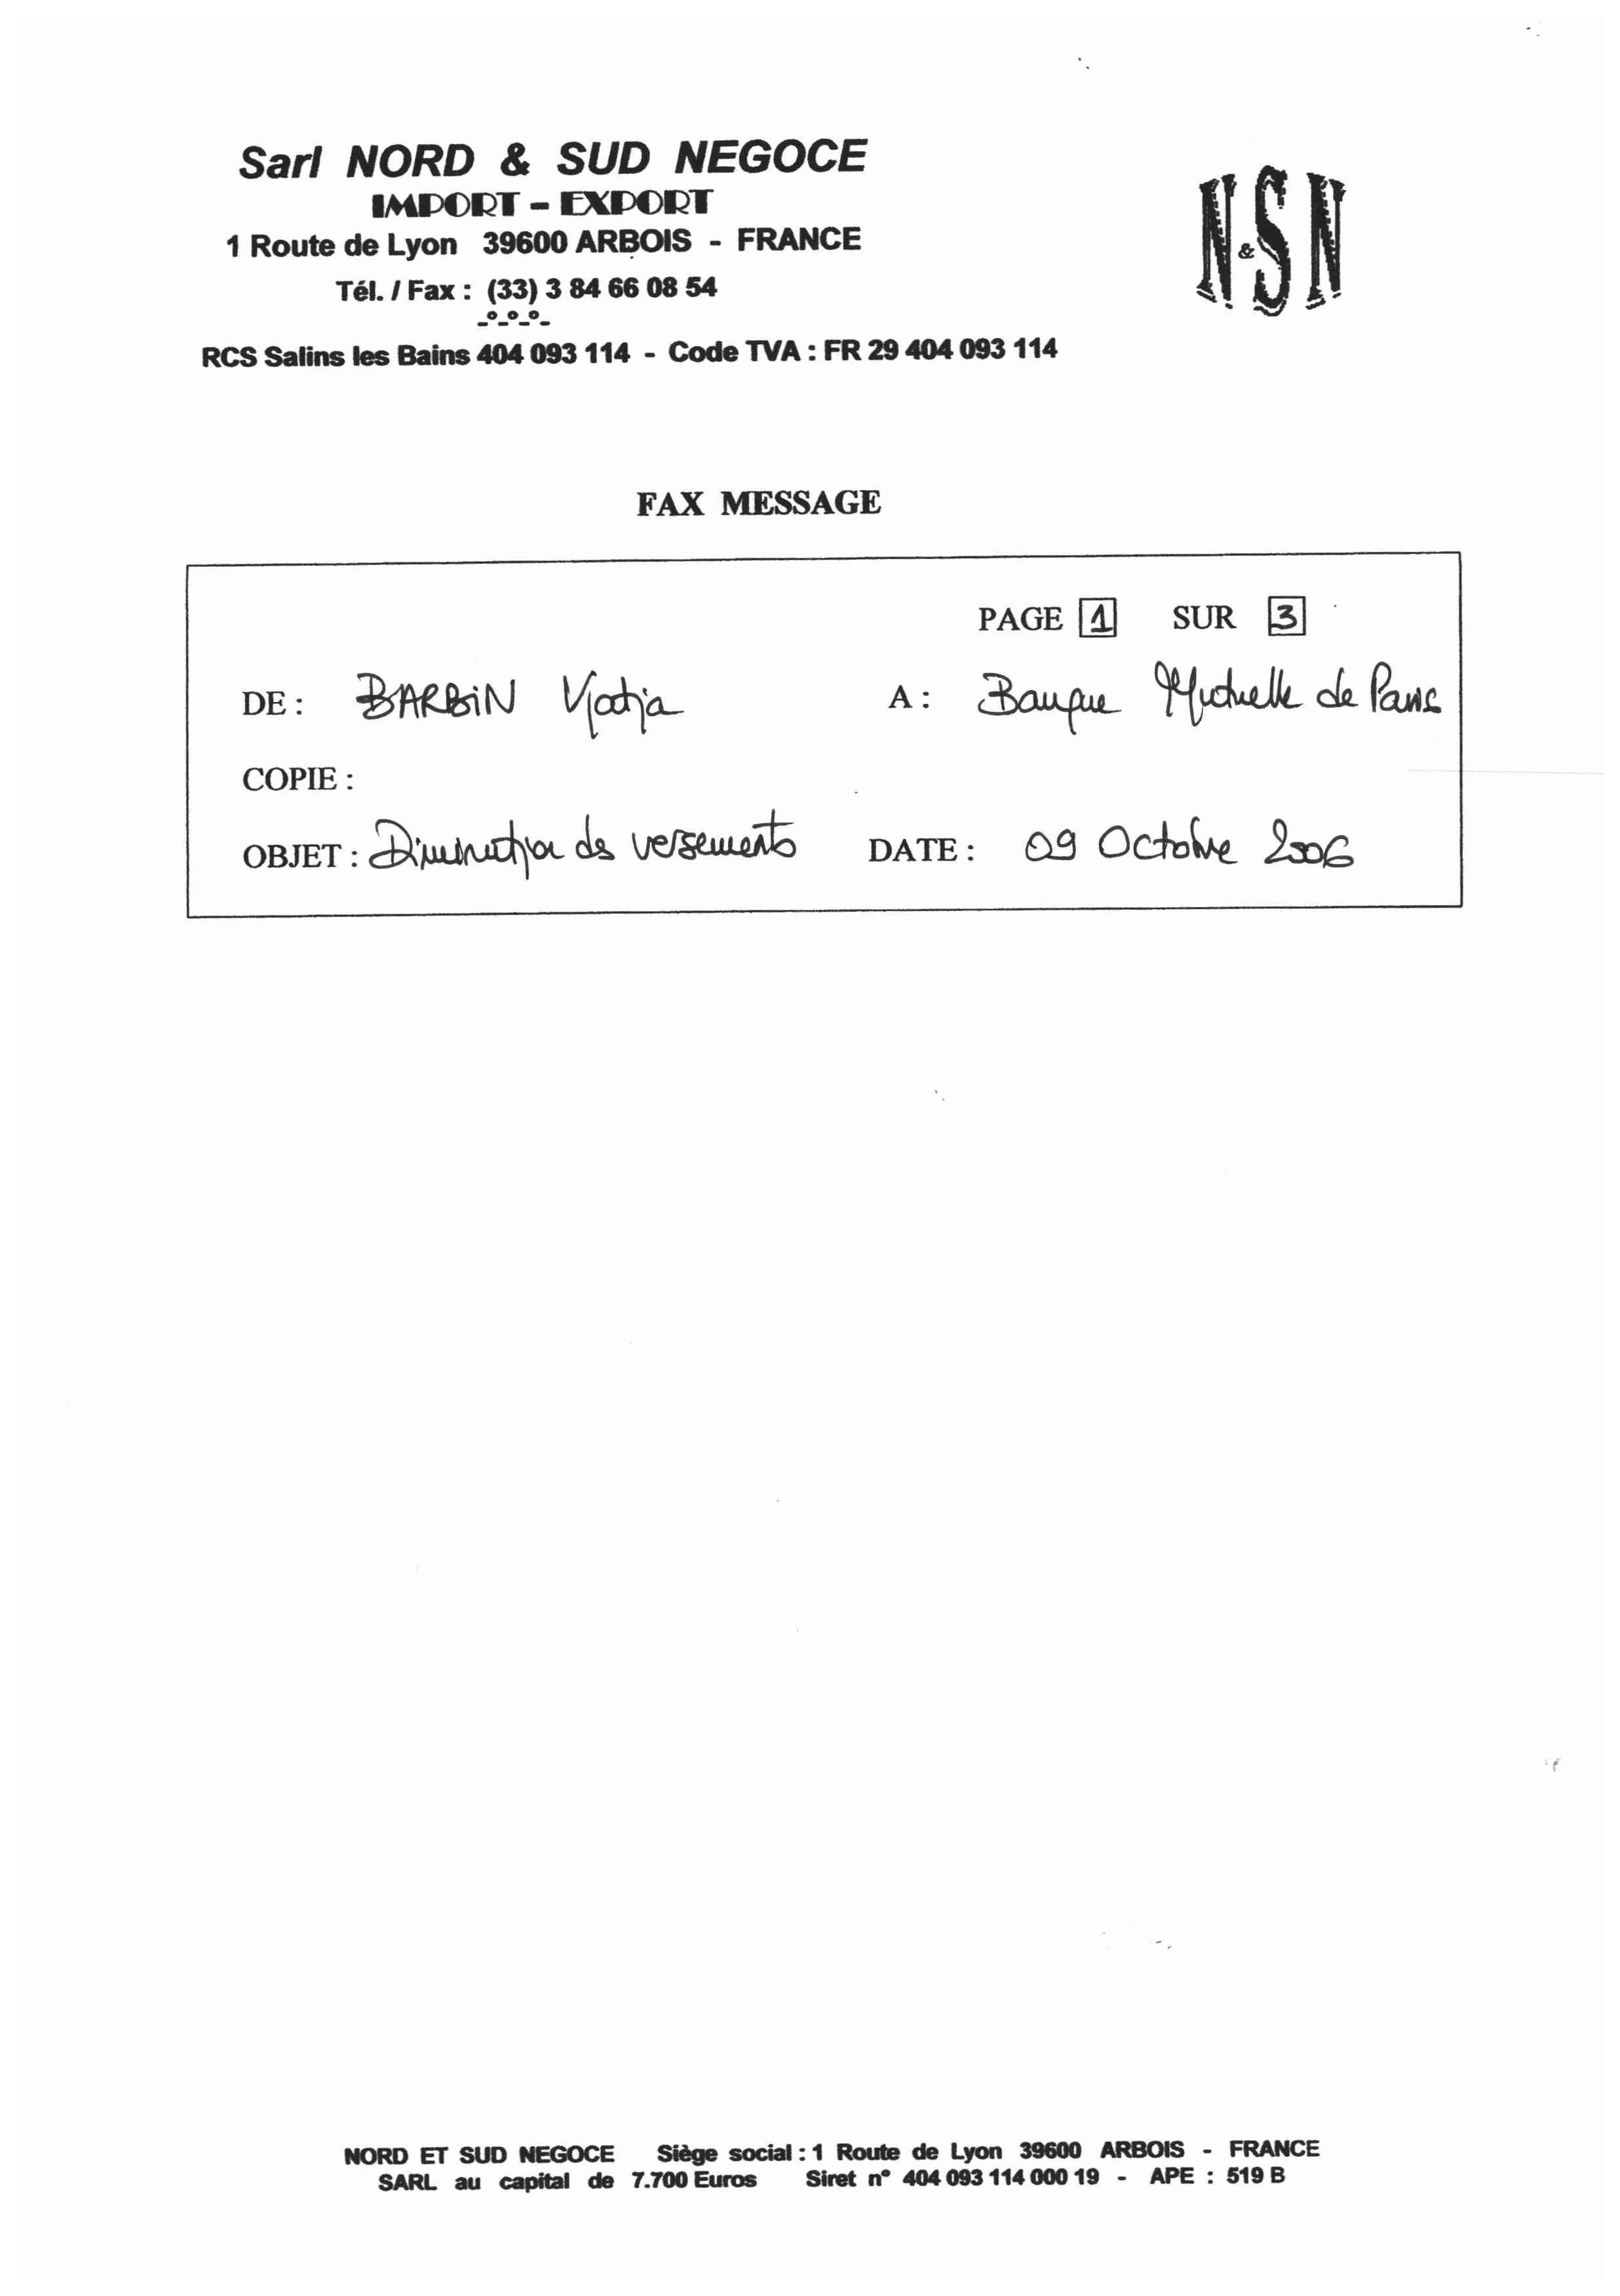 Sarl NORD & SUD NEGOCE
IMPORT - EXPORT
1 Route de Lyon 39600 ARBOIS - FRANCE
Tél. / Fax : (33) 3 84 66 08 54
-°-°-°-
RCS Salins les Bains 404 093 114 - Code TVA : FR 29 404 093 114
N&SN
FAX MESSAGE
PAGE 1 SUR 3
DE : BARBIN A : Banque Mutuelle de Paris
COPIE :
OBJET : Diminution des versements DATE : 09 Octobre 2006
NORD ET SUD NEGOCE Siège social : 1 Route de Lyon 39600 ARBOIS - FRANCE
SARL au capital de 7.700 Euros Siret n° 404 093 114 000 19 - APE : 519 B